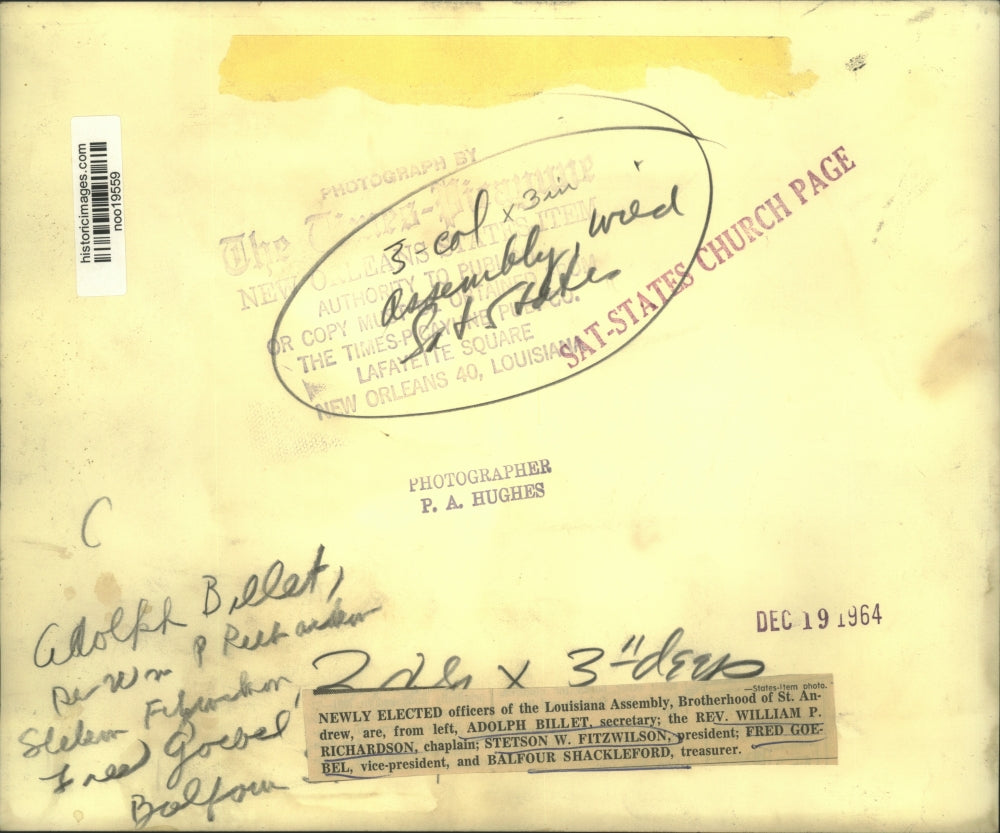 historicimages.com
noo19559
PHOTOGRAPH BY
The Times-Picayune
NEW ORLEANS STATES-ITEM
AUTHORITY TO PUBLISH
OR COPY MUST BE OBTAINED FROM
THE TIMES-PICAYUNE PUB. CO.
LAFAYETTE SQUARE
NEW ORLEANS 40, LOUISIANA
3-col x 3 in
assembly, wied
Sat States
SAT-STATES CHURCH PAGE
PHOTOGRAPHER
P. A. HUGHES
C
Adolph Billet,
Wm P Richardson
Fred Goebel
Balfour
DEC 19 1964
x 3" deep
—States-Item photo.
NEWLY ELECTED officers of the Louisiana Assembly, Brotherhood of St. An-
drew, are, from left, ADOLPH BILLET, secretary; the REV. WILLIAM P.
RICHARDSON, chaplain; STETSON W. FITZWILSON, president; FRED GOE-
BEL, vice-president, and BALFOUR SHACKLEFORD, treasurer.